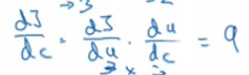 →3
dJ/dc = dJ/du · du/dc = 9
3 × 3